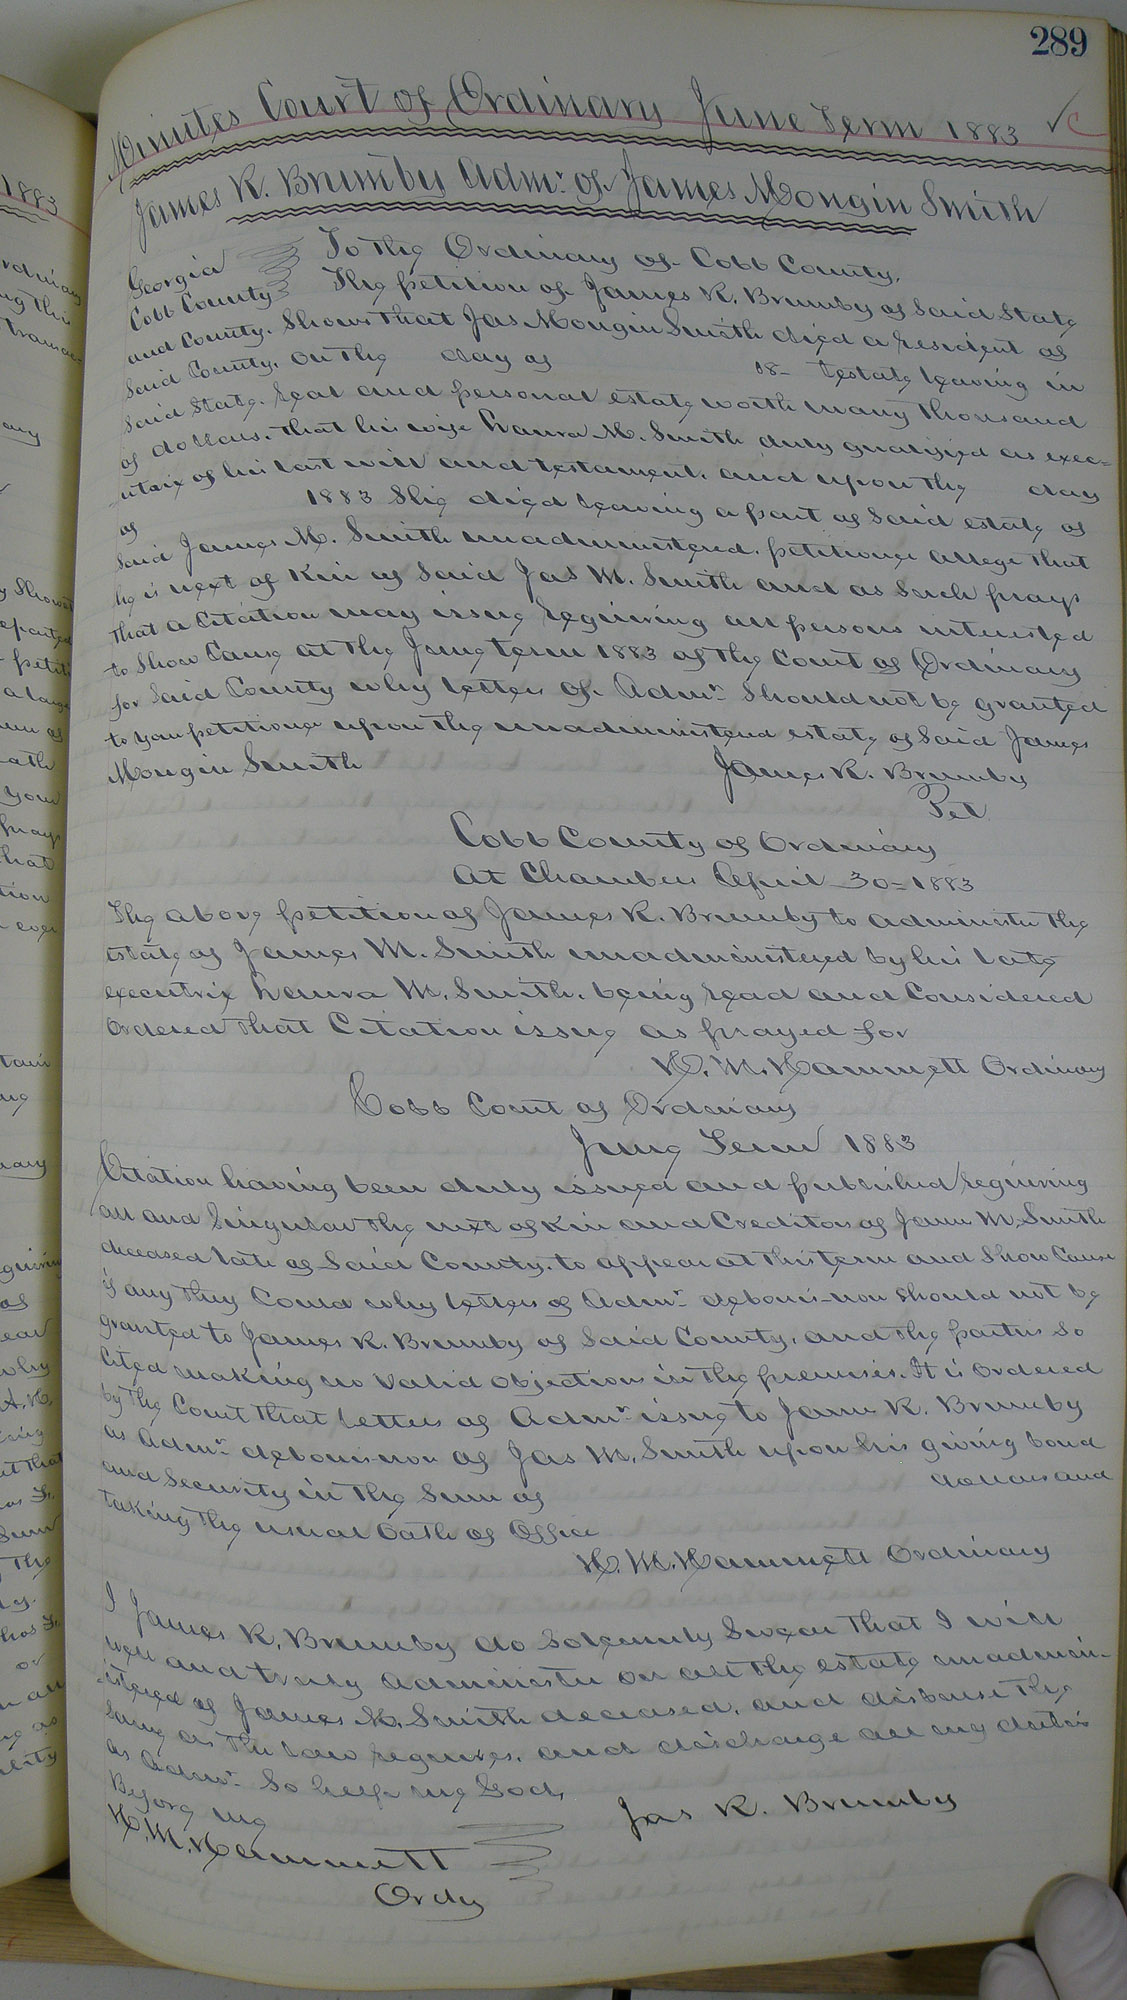 289
Minutes Court of Ordinary June Term 1883
James R. Brumby Admr. of James Mongin Smith
Georgia To the Ordinary of Cobb County,
Cobb County The petition of James R. Brumby of Said State
and County. Shows that Jas Mongin Smith died a resident of
Said County. on the day of 18- testate leaving in
Said State. real and personal estate worth many thousand
of dollars. that his wife Laura M. Smith duly qualified as exec=
utrix of his last will and testament. and upon the day
of 1883 She died leaving a part of Said estate of
Said James M. Smith unadministered. petitioner allege that
he is next of Kin of Said Jas M. Smith and as Such prays
that a Citation may issue requiring all persons interested
to Show Cause at the June term 1883 of the Court of Ordinary
for Said County why letters of Admr. Should not be granted
to your petitioner upon the unadministered estate of Said James
Mongin Smith James R. Brumby
Pet
Cobb County of Ordinary
At Chambers April 30= 1883
The above petition of James R. Brumby to administer the
estate of James M. Smith unadministered by his late
executrix Laura M. Smith. being read and Considered
Ordered that Citation issue as prayed for
H. M. Hammett Ordinary
Cobb Court of Ordinary
June Term 1883
Citation having been duly issued and published requiring
all and Singular the next of Kin and Creditors of James M. Smith
deceased late of Said County. to appear at this term and Show Cause
if any they Could why letters of Admr. debonis-non Should not be
granted to James R. Brumby of Said County. and the parties So
Cited making no valid objection in the premises. It is Ordered
by the Court that letters of Admr. issue to James R. Brumby
as Admr. debonis-non of Jas M. Smith upon his giving bond
and Security in the Sum of dollars and
taking the usual Oath of Office
H. M. Hammett Ordinary
I James R. Brumby do Solemnly Swear that I will
well and truly administer on all the estate unadmin-
istered of James M. Smith deceased. and disburse the
Same as the law requires. and discharge all my duties
as Admr. So help me God,
Before me Jas R. Brumby
H. M. Hammett
Ordy